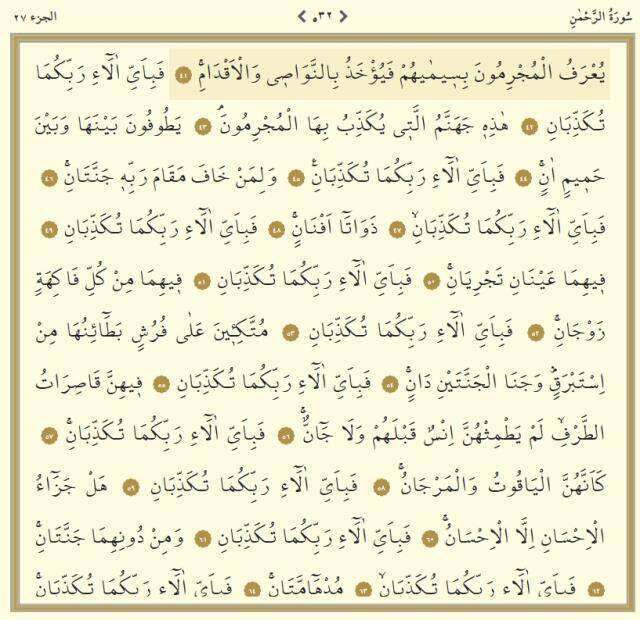 سُورَةُ الرَّحْمٰنِ ٥٣٢ الجزء ٢٧
يُعْرَفُ الْمُجْرِمُونَ بِسِيمٰيهُمْ فَيُؤْخَذُ بِالنَّوَاصِي وَالْاَقْدَامِۚ ٤١ فَبِاَيِّ اٰلَٓاءِ رَبِّكُمَا
تُكَذِّبَانِ ٤٢ هٰذِهِ جَهَنَّمُ الَّتِي يُكَذِّبُ بِهَا الْمُجْرِمُونَۢ ٤٣ يَطُوفُونَ بَيْنَهَا وَبَيْنَ
حَمِيمٍ اٰنٍۚ ٤٤ فَبِاَيِّ اٰلَٓاءِ رَبِّكُمَا تُكَذِّبَانِ۟ ٤٥ وَلِمَنْ خَافَ مَقَامَ رَبِّهِ جَنَّتَانِۚ ٤٦
فَبِاَيِّ اٰلَٓاءِ رَبِّكُمَا تُكَذِّبَانِۙ ٤٧ ذَوَاتَٓا اَفْنَانٍۚ ٤٨ فَبِاَيِّ اٰلَٓاءِ رَبِّكُمَا تُكَذِّبَانِ ٤٩
فِيهِمَا عَيْنَانِ تَجْرِيَانِۚ ٥٠ فَبِاَيِّ اٰلَٓاءِ رَبِّكُمَا تُكَذِّبَانِ ٥١ فِيهِمَا مِنْ كُلِّ فَاكِهَةٍ
زَوْجَانِۚ ٥٢ فَبِاَيِّ اٰلَٓاءِ رَبِّكُمَا تُكَذِّبَانِ ٥٣ مُتَّكِـِٔينَ عَلٰى فُرُشٍ بَطَٓائِنُهَا مِنْ
اِسْتَبْرَقٍۜ وَجَنَا الْجَنَّتَيْنِ دَانٍۚ ٥٤ فَبِاَيِّ اٰلَٓاءِ رَبِّكُمَا تُكَذِّبَانِ ٥٥ فِيهِنَّ قَاصِرَاتُ
الطَّرْفِۙ لَمْ يَطْمِثْهُنَّ اِنْسٌ قَبْلَهُمْ وَلَا جَٓانٌّۚ ٥٦ فَبِاَيِّ اٰلَٓاءِ رَبِّكُمَا تُكَذِّبَانِۚ ٥٧
كَاَنَّهُنَّ الْيَاقُوتُ وَالْمَرْجَانُۚ ٥٨ فَبِاَيِّ اٰلَٓاءِ رَبِّكُمَا تُكَذِّبَانِ ٥٩ هَلْ جَزَٓاءُ
الْاِحْسَانِ اِلَّا الْاِحْسَانُۚ ٦٠ فَبِاَيِّ اٰلَٓاءِ رَبِّكُمَا تُكَذِّبَانِ ٦١ وَمِنْ دُونِهِمَا جَنَّتَانِۚ
٦٢ فَبِاَيِّ اٰلَٓاءِ رَبِّكُمَا تُكَذِّبَانِۙ ٦٣ مُدْهَٓامَّتَانِۚ ٦٤ فَبِاَيِّ اٰلَٓاءِ رَبِّكُمَا تُكَذِّبَانِۚ